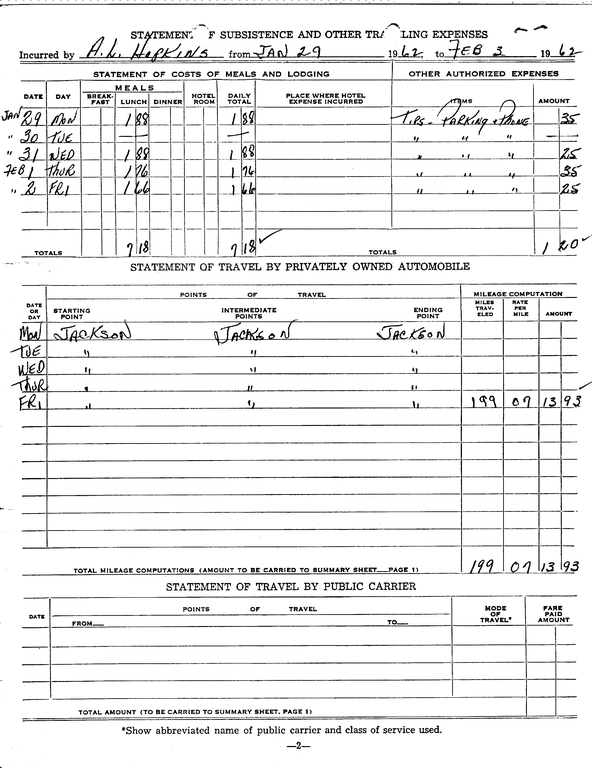 STATEMENT OF SUBSISTENCE AND OTHER TRA LING EXPENSES
Incurred by A.L. Hopkins from JAN 29 1962 to FEB 3 1962
STATEMENT OF COSTS OF MEALS AND LODGING OTHER AUTHORIZED EXPENSES
DATE DAY MEALS BREAK-FAST LUNCH DINNER HOTEL ROOM DAILY TOTAL PLACE WHERE HOTEL EXPENSE INCURRED ITEMS AMOUNT
JAN 29 MON 1 88 1 88 TIPS - PARKING + PHONE 35
" 30 TUE — — " " " —
" 31 WED 1 88 1 88 " " " 25
FEB 1 THUR 1 76 1 76 " " " 35
" 2 FRI 1 66 1 66 " " " 25
TOTALS 7 18 7 18 ✓ TOTALS 1 20 ✓
STATEMENT OF TRAVEL BY PRIVATELY OWNED AUTOMOBILE
DATE OR DAY POINTS OF TRAVEL STARTING POINT INTERMEDIATE POINTS ENDING POINT MILEAGE COMPUTATION MILES TRAV-ELED RATE PER MILE AMOUNT
MON JACKSON JACKSON JACKSON
TUE " " "
WED " " "
THUR " " "
FRI " " " 199 07 13 93 ✓
TOTAL MILEAGE COMPUTATIONS (AMOUNT TO BE CARRIED TO SUMMARY SHEET—PAGE 1) 199 07 13 93
STATEMENT OF TRAVEL BY PUBLIC CARRIER
DATE POINTS OF TRAVEL FROM— TO— MODE OF TRAVEL* FARE PAID AMOUNT
TOTAL AMOUNT (TO BE CARRIED TO SUMMARY SHEET, PAGE 1)
*Show abbreviated name of public carrier and class of service used.
—2—